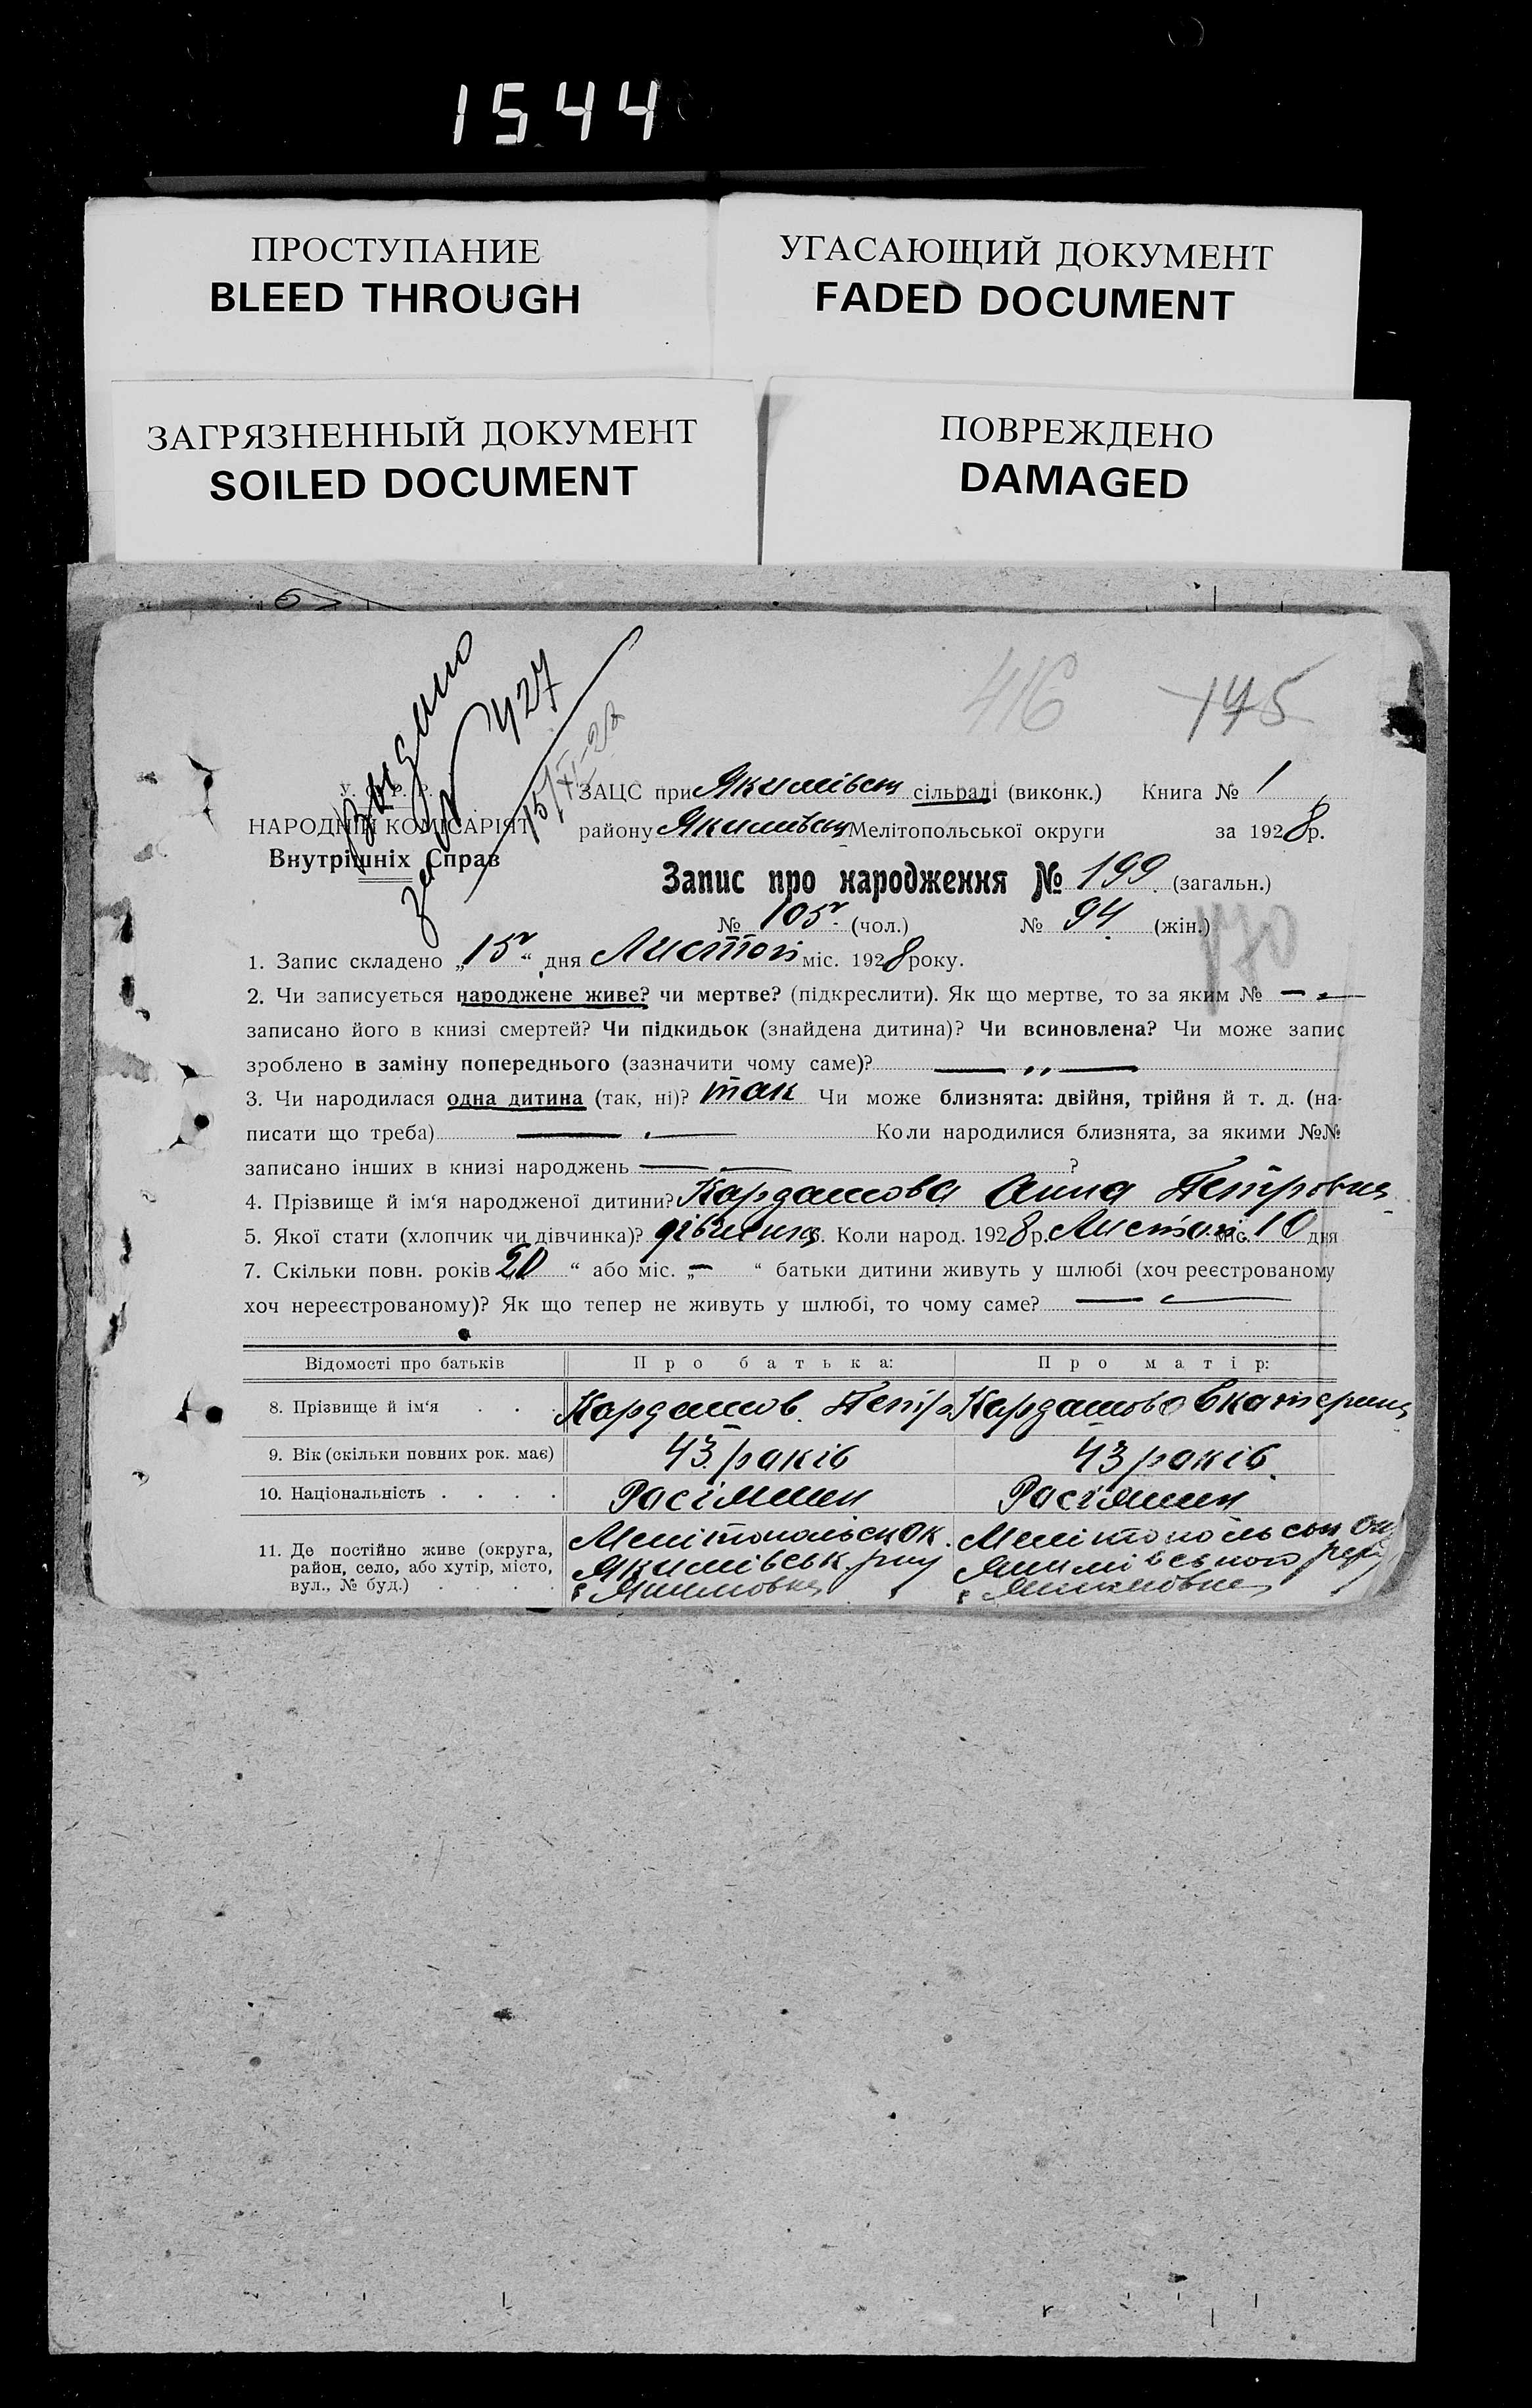 1544
ПРОСТУПАНИЕ
BLEED THROUGH
УГАСАЮЩИЙ ДОКУМЕНТ
FADED DOCUMENT
ЗАГРЯЗНЕННЫЙ ДОКУМЕНТ
SOILED DOCUMENT
ПОВРЕЖДЕНО
DAMAGED
416 145
Видано
за № 427
15/XI-28
У. С. Р. Р.
НАРОДНІЙ КОМІСАРІЯТ
Внутрішніх Справ
ЗАЦС при Якимівськ сільраді (виконк.) Книга № 1
району Якимівськ Мелітопольської округи за 1928 р.
Запис про народження № 199 (загальн.)
№ 105 (чол.) № 94 (жін.)
170
1. Запис складено „15“ дня Листоп міс. 1928 року.
2. Чи записується народжене живе? чи мертве? (підкреслити). Як що мертве, то за яким № —
записано його в книзі смертей? Чи підкидьок (знайдена дитина)? Чи всиновлена? Чи може запис
зроблено в заміну попереднього (зазначити чому саме)? — „ —
3. Чи народилася одна дитина (так, ні)? так Чи може близнята: двійня, трійня й т. д. (на-
писати що треба) — Коли народилися близнята, за якими №№
записано інших в книзі народжень — — ?
4. Прізвище й ім‘я народженої дитини? Кардашова Анна Петровна
5. Якої стати (хлопчик чи дівчинка)? дівчинка. Коли народ. 1928 р. Листо. міс. 10 дня
7. Скільки повн. років 20 “ або міс. „— “ батьки дитини живуть у шлюбі (хоч реєстрованому
хоч нереєстрованому)? Як що тепер не живуть у шлюбі, то чому саме? — —
Відомості про батьків Про батька: Про матір:
8. Прізвище й ім‘я . . . Кардашов Петро Кардашова Екатерина
9. Вік (скільки повних рок. має) 43 років 43 років
10. Національність . . . . Росіянин Росіянин
11. Де постійно живе (округа, Мелітопольськ Ок. Мелітопольськ Ок.
район, село, або хутір, місто, Якимівськ. рну Якимівського рай
вул., № буд.) . . . . с Якимовка с Якимовка